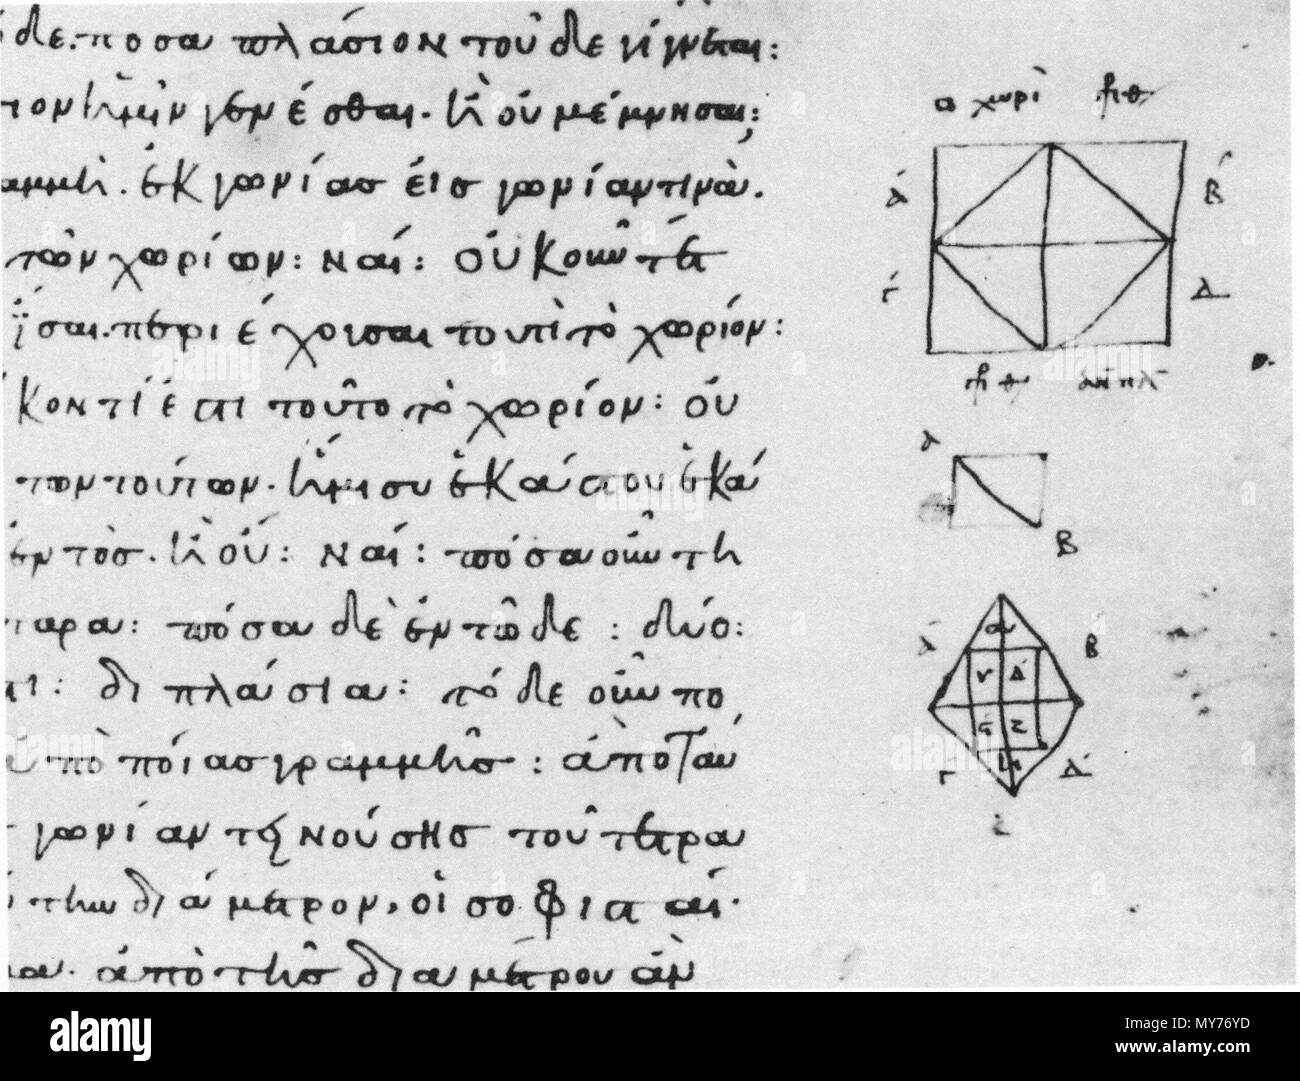 δε· ποσαπλάσιον τοῦδε γίγνεται:
τον ἡμῖν γενέσθαι· ἢ οὐ μέμνησαι;
αμμὴ· ἐκ γωνίας εἰς γωνίαν τινὰ.
τῶν χωρίων: ναί: οὐκοῦν τέτ
ἴσαι· περιέχουσαι τουτὶ τὸ χωρίον:
κον τί ἐστι τοῦτο τὸ χωρίον: οὐ
των τούτων· ἥμισυ ἑκάστου ἑκά
ἐντὸς· ἢ οὔ: ναί: πόσα οὖν τη
ταρα: πόσα δὲ ἐν τῶδε: δύο:
τι: διπλάσια: τόδε οὖν πο
ἀπὸ ποίας γραμμῆς: ἀπὸ ταύ
γωνίαν τεινούσης τοῦ τετρα
την διάμετρον, οἱ σοφισταί·
ἀπὸ τῆς διαμέτρου ἂν
α χωρι
Α Β
Γ Δ
Α
Β
Α Β
Γ Δ
Γ Δ
alamy
Image ID: MY76YD
www.alamy.com